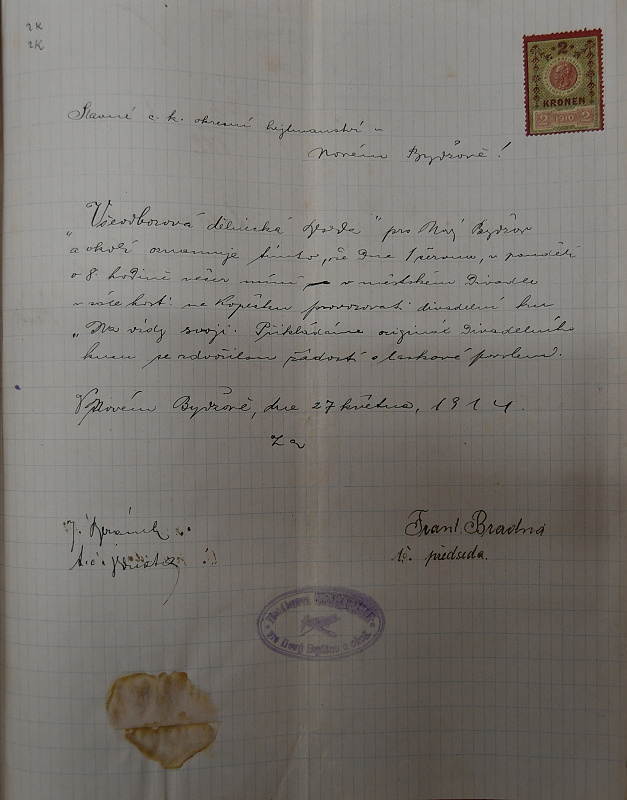 2K
2K
2
KRONEN
2 1910 2
Slavné c. k. okresní hejtmanství v
Novém Bydžově!
„Všeodborová dělnická beseda" pro Nový Bydžov
a okolí oznamuje tímto, že dne 1 června, v pondělí
o 8 hodině večer míní v městském Divadle
v sále host: na Kopečku provozovati divadelní kus
„Na vždy svoji. Přikládáme originál Divadelního
kusu se zdvořilou žádostí o laskavé povolení.
V Novém Bydžově, dne 27 května, 1914.
Za
Frant Bradna
tč. předseda.
J.
v Nový Bydžov a okol.